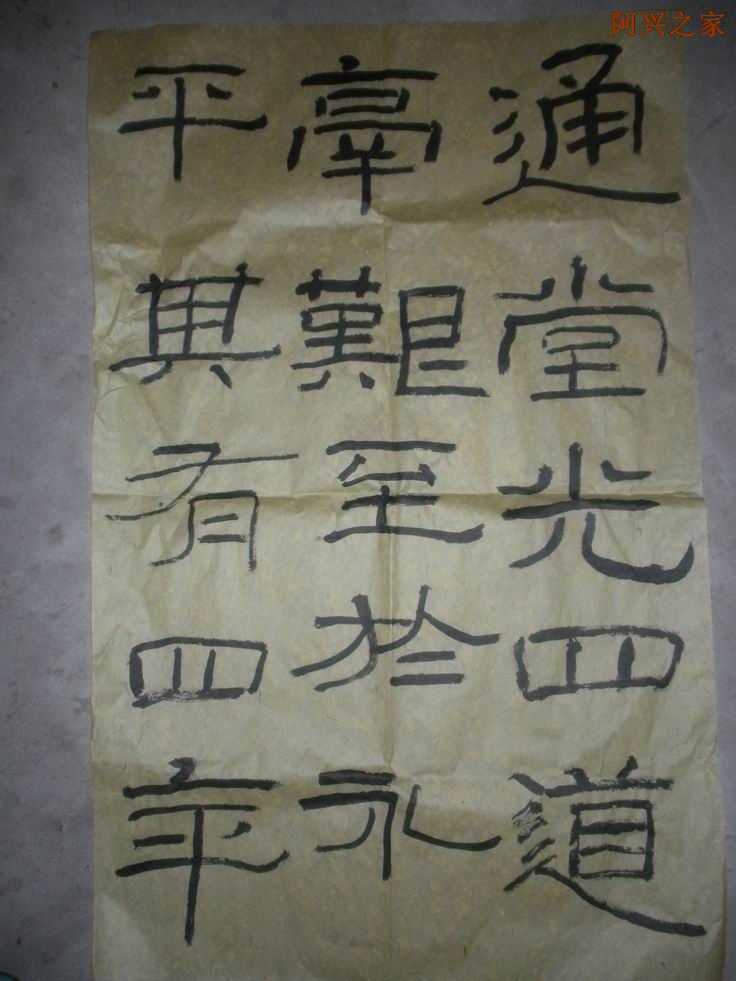 通堂光四道
鬲艱至於永
平其有四年
阿兴之家